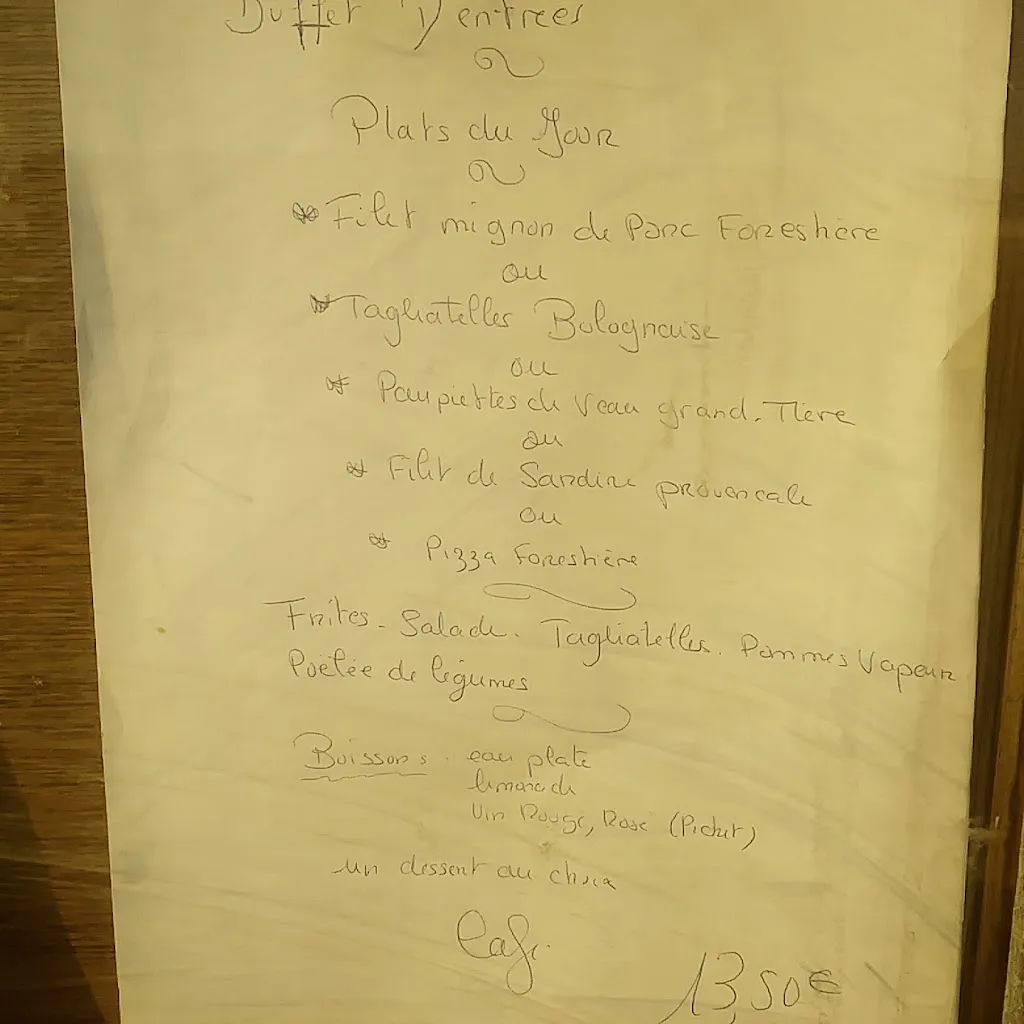 Buffet D'entrées
Plats du Jour
* Filet mignon de Porc Forestière
ou
* Tagliatelles Bolognaise
ou
* Paupiettes de Veau grand-Mère
ou
* Filet de Sardine provencale
ou
* Pizza Forestière
Frites - Salade. Tagliatelles. Pommes Vapeur
Poêlée de légumes
Boissons : eau plate
limonade
Vin Rouge, Rosé (Pichet)
un dessert au choix
Café
13,50€